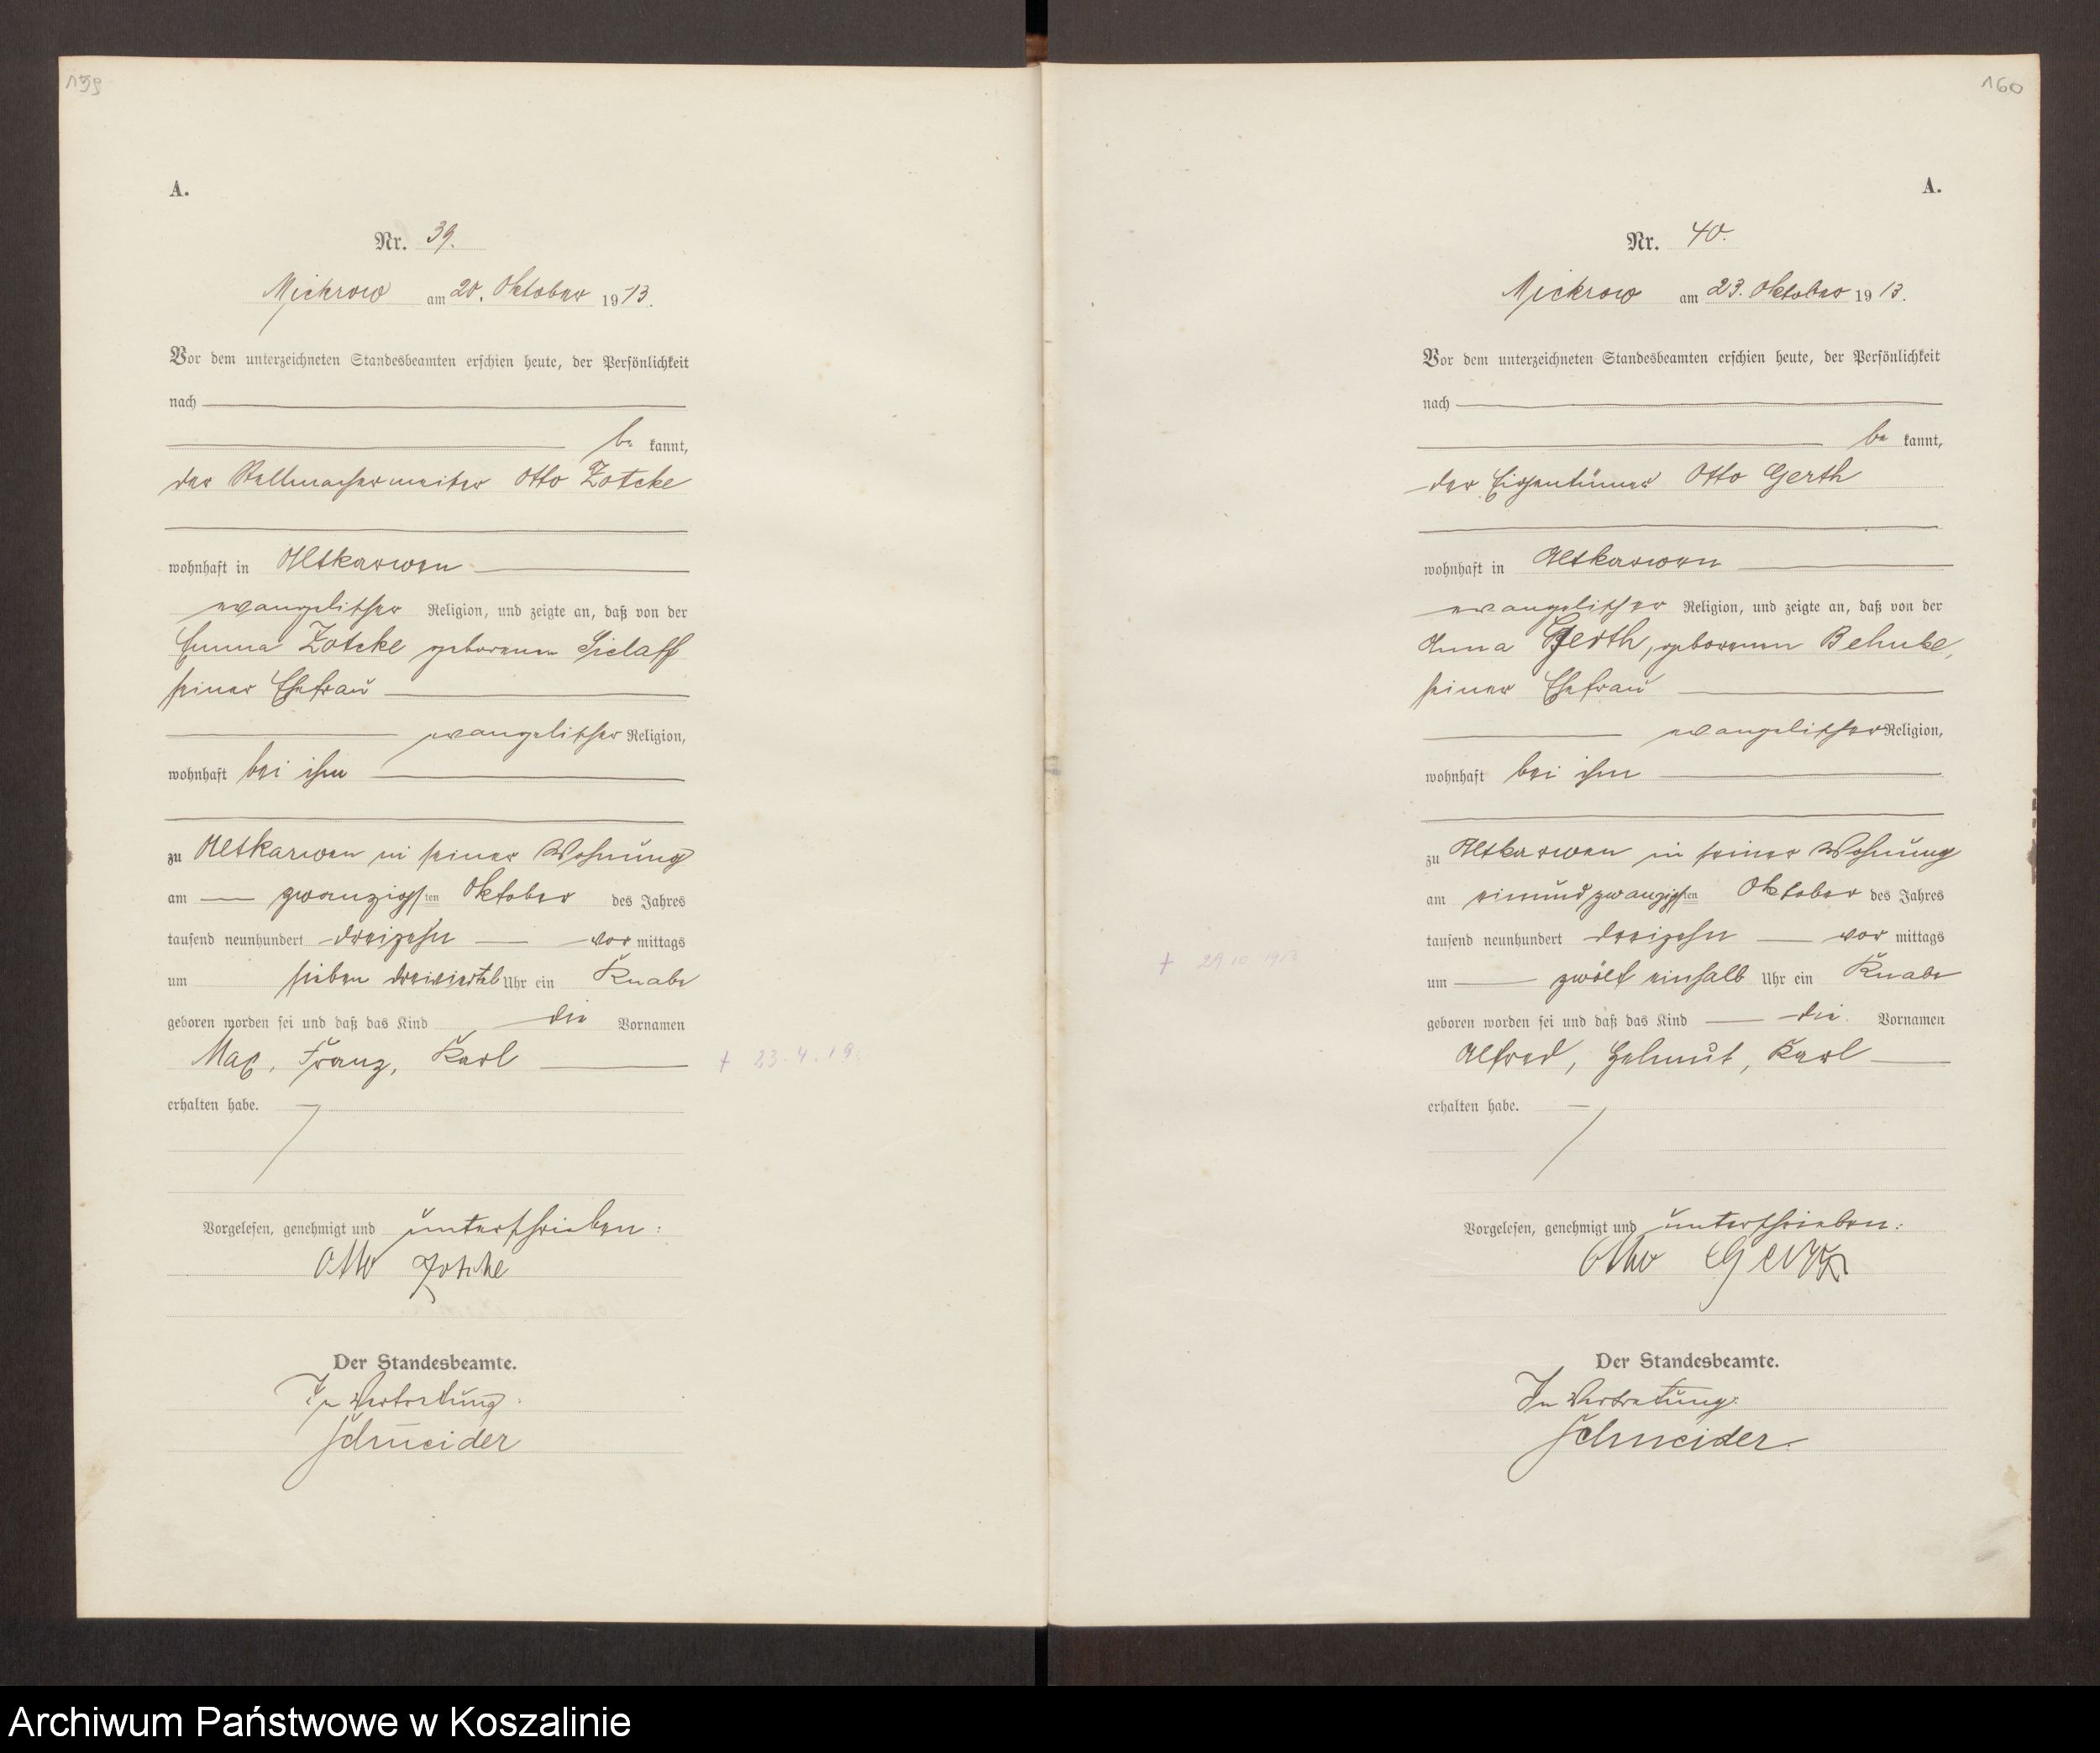 159
A.
Nr. 39.
Mickrow am 20. Oktober 1913.
Vor dem unterzeichneten Standesbeamten erschien heute, der Persönlichkeit
nach
be kannt,
der Stellmachermeister Otto Zotcke
wohnhaft in Altkarwen
evangelischer Religion, und zeigte an, daß von der
Emma Zotcke geborenen Sielaff
seiner Ehefrau
evangelischer Religion,
wohnhaft bei ihm
zu Altkarwen in seiner Wohnung
am zwanzigsten Oktober des Jahres
tausend neunhundert dreizehn vor mittags
um sieben dreiviertel Uhr ein Knabe
geboren worden sei und daß das Kind die Vornamen
Max, Franz, Karl
† 23.4.19
erhalten habe.
Vorgelesen, genehmigt und unterschrieben:
Otto Zotcke
Der Standesbeamte.
In Vertretung:
Schneider
160
A.
Nr. 40.
Mickrow am 23. Oktober 1913.
Vor dem unterzeichneten Standesbeamten erschien heute, der Persönlichkeit
nach
be kannt,
der Eigentümer Otto Gerth
wohnhaft in Altkarwen
evangelischer Religion, und zeigte an, daß von der
Anna Gerth, geborenen Behnke,
seiner Ehefrau
evangelischer Religion,
wohnhaft bei ihm
zu Altkarwen in seiner Wohnung
am einundzwanzigsten Oktober des Jahres
tausend neunhundert dreizehn vor mittags
† 29.10.1913
um zwölf einhalb Uhr ein Knabe
geboren worden sei und daß das Kind die Vornamen
Alfred, Helmut, Karl
erhalten habe.
Vorgelesen, genehmigt und unterschrieben:
Otto Gerth
Der Standesbeamte.
In Vertretung:
Schneider.
Archiwum Państwowe w Koszalinie